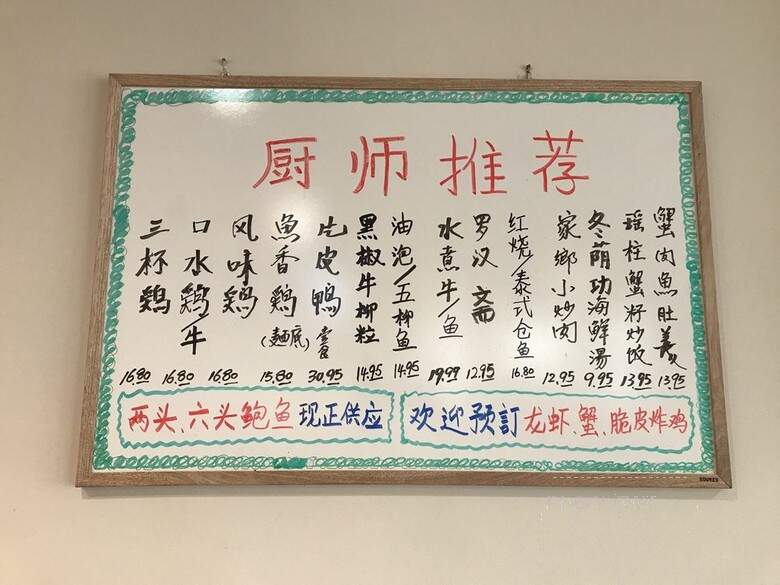 厨师推荐
蟹肉魚肚羹 13.95
瑶柱蟹籽炒饭 13.95
冬荫功海鲜湯 9.95
家鄉小炒肉 12.95
红烧/泰式仓鱼 16.80
罗汉斋 12.95
水煮牛/鱼 19.99
油泡/五柳鱼 14.95
黑椒牛柳粒 14.95
片皮鴨 30.95
魚香鷄(麵底) 15.80
风味鷄 16.80
口水鷄/牛 16.80
三杯鷄 16.80
两头、六头鲍鱼现正供应
欢迎预訂龙虾、蟹、脆皮炸鸡